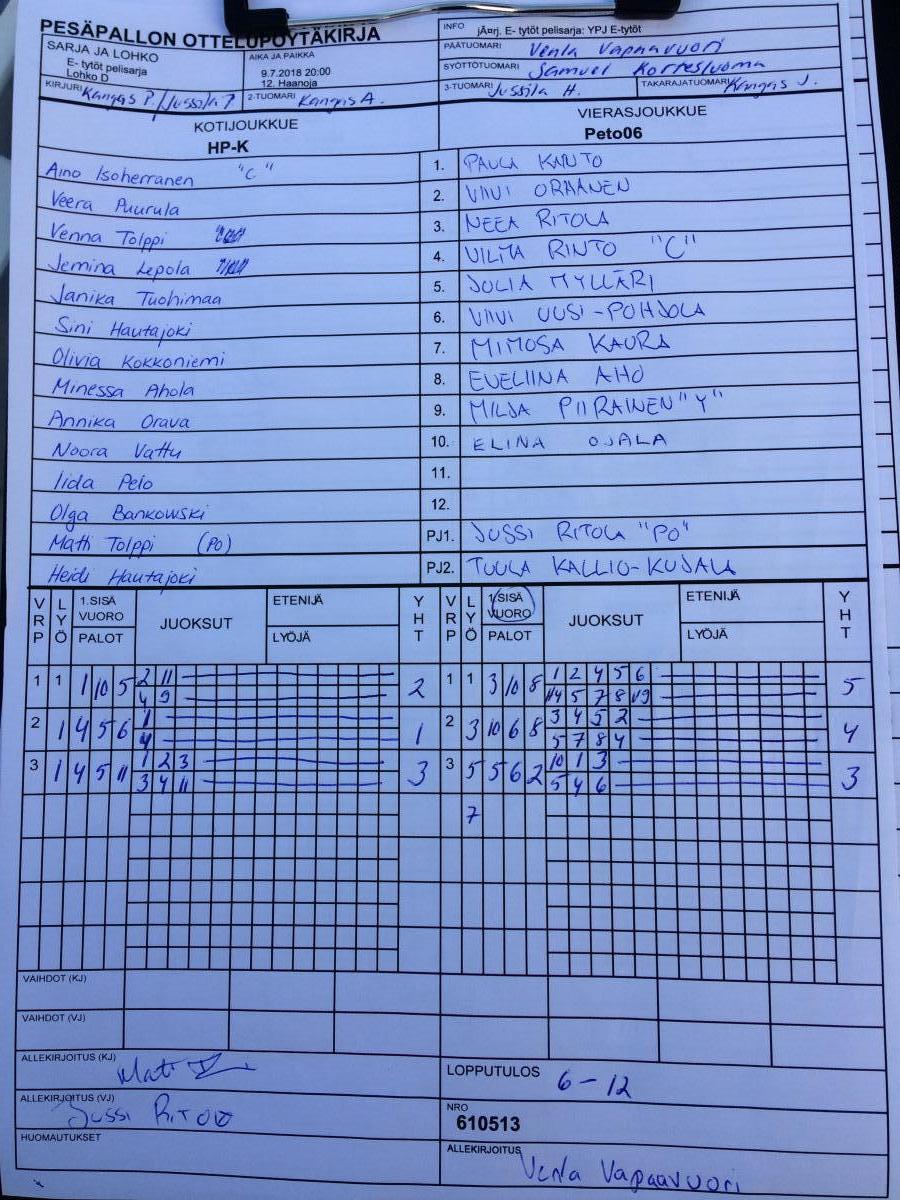 PESÄPALLON OTTELUPÖYTÄKIRJA
SARJA JA LOHKO
E- tytöt pelisarja
Lohko D
AIKA JA PAIKKA
9.7.2018 20:00
12. Haanoja
INFO jÃ¤rj. E- tytöt pelisarja: YPJ E-tytöt
PÄÄTUOMARI Venla Vapaavuori
SYÖTTÖTUOMARI Samuel Kortesluoma
KIRJURI Kangas P. / Jussila P
2-TUOMARI Kangas A.
3-TUOMARI Jussila H.
TAKARAJATUOMARI Kangas J.
KOTIJOUKKUE
HP-K
VIERASJOUKKUE
Peto06
Aino Isoherranen "C" 1. PAULA KAUTO
Veera Puurula 2. VIIVI ORAANEN
Venna Tolppi 3. NEEA RITOLA
Jemina Lepola 4. VILMA RINTO "C"
Janika Tuohimaa 5. JULIA MYLLÄRI
Sini Hautajoki 6. VIIVI UUSI-POHJOLA
Olivia Kokkoniemi 7. MIMOSA KAURA
Minessa Ahola 8. EVELIINA AHO
Annika Orava 9. MILJA PIIRAINEN "Y"
Noora Vattu 10. ELINA OJALA
Iida Pelo 11.
Olga Bankowski 12.
Matti Tolppi (PO) PJ1. JUSSI RITOLA "PO"
Heidi Hautajoki PJ2. TUULA KALLIO-KUJALA
VRP LYÖ 1.SISÄ VUORO PALOT JUOKSUT ETENIJÄ LYÖJÄ YHT VRP LYÖ 1.SISÄ VUORO PALOT JUOKSUT ETENIJÄ LYÖJÄ YHT
1 1 1 10 5 2 11 2 1 1 3 10 8 1 2 4 5 6 5
4 9 4 5 7 8
2 1 4 5 6 1 1 2 3 10 6 8 3 4 5 2 4
4 5 7 8 4
3 1 4 5 11 1 2 3 3 3 5 5 6 2 10 1 3 3
3 4 11 5 4 6
7
VAIHDOT (KJ)
VAIHDOT (VJ)
ALLEKIRJOITUS (KJ)
LOPPUTULOS 6-12
ALLEKIRJOITUS (VJ) Jussi Ritola
NRO
610513
HUOMAUTUKSET
ALLEKIRJOITUS Venla Vapaavuori